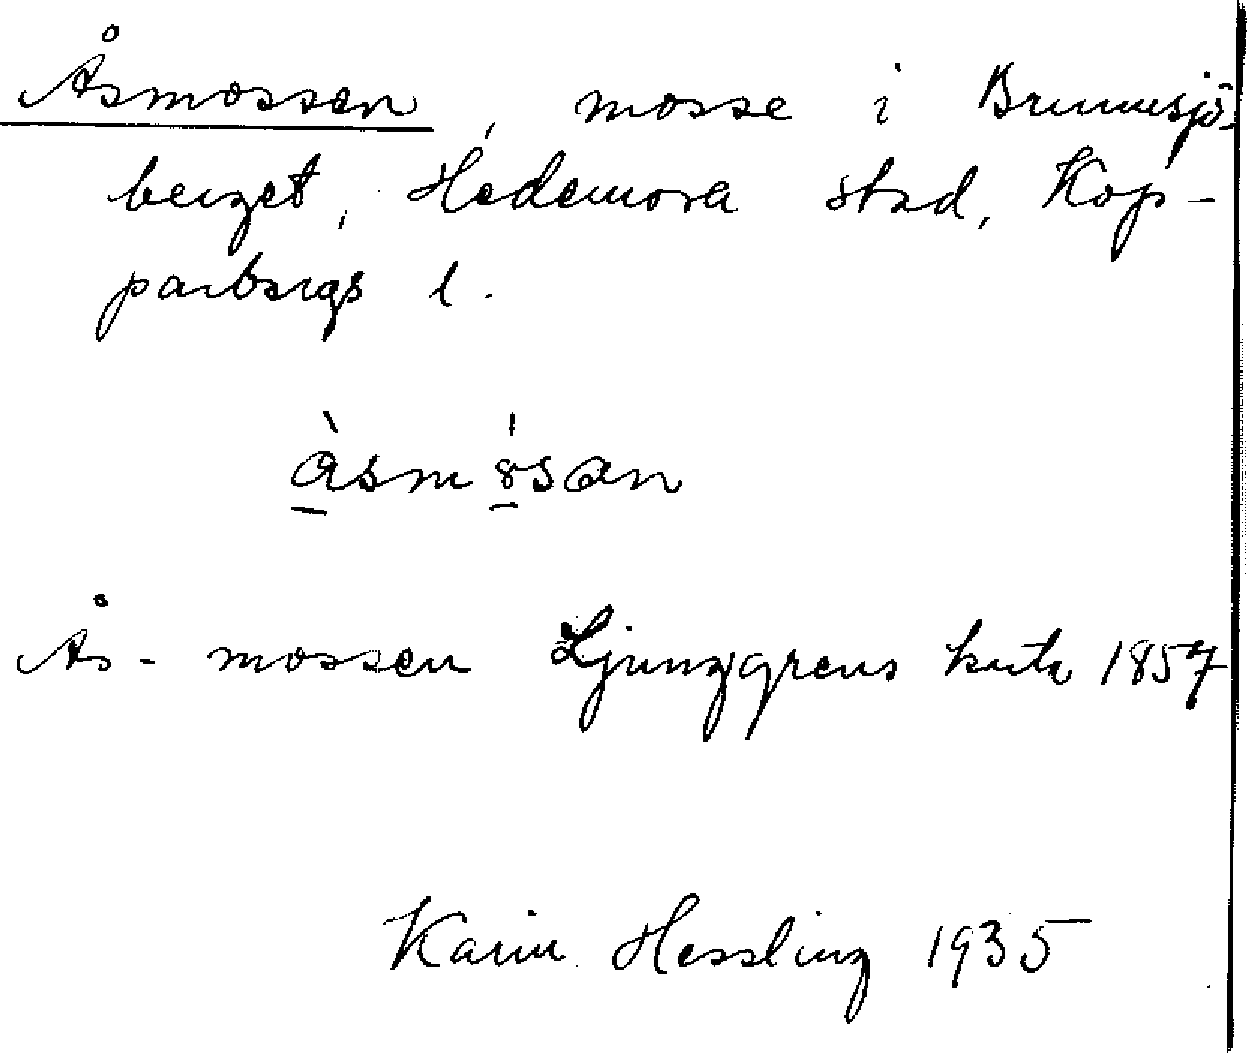 Åsmossen, mosse i Brunnsjö-
berget, Hedemora stad, Kop-
parbergs l.
åsmosan
Ås-mossen Ljunggrens karta 1857
Karin Hessling 1935